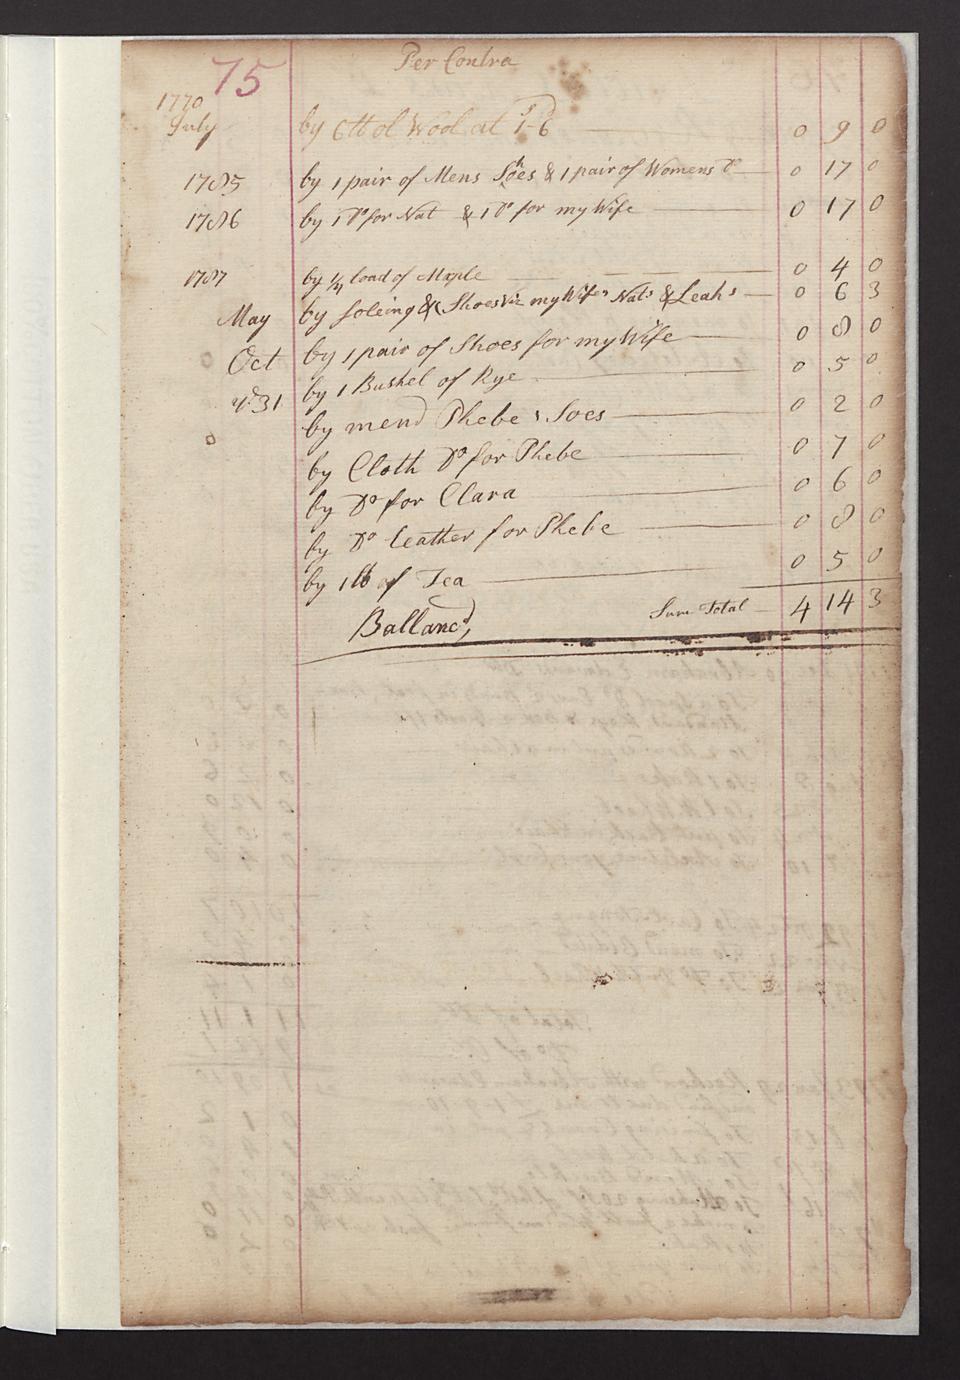 75
Per Contra
1770
July by 6 ℔ of Wool at 1s-6d 0 9 0
1785 by 1 pair of Mens Shoes & 1 pair of Womens Do 0 17 0
1786 by 1 Do for Nat & 1 Do for my Wife 0 17 0
1787 by 1/4 load of Maple 0 4 0
May by soleing &c Shoes viz my Wifes Nats & Leahs 0 6 3
Oct by 1 pair of Shoes for my Wife 0 8 0
31 by 1 Bushel of Rye 0 5 0
by mend Phebes Soes 0 2 0
by Cloth Do for Phebe 0 7 0
by Do for Clara 0 6 0
by Do leather for Phebe 0 8 0
by 1 lb of Tea 0 5 0
Ballancd, Sum Total 4 14 3